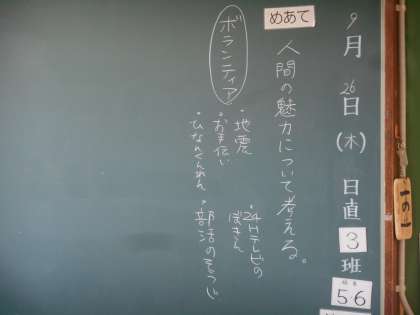 9月26日(木) 日直 3 班
56
めあて
人間の魅力について考える。
ボランティア
・地震
・お手伝い
・ひなんくんれん
・24Hテレビの
ぼきん
・部活のそうじ